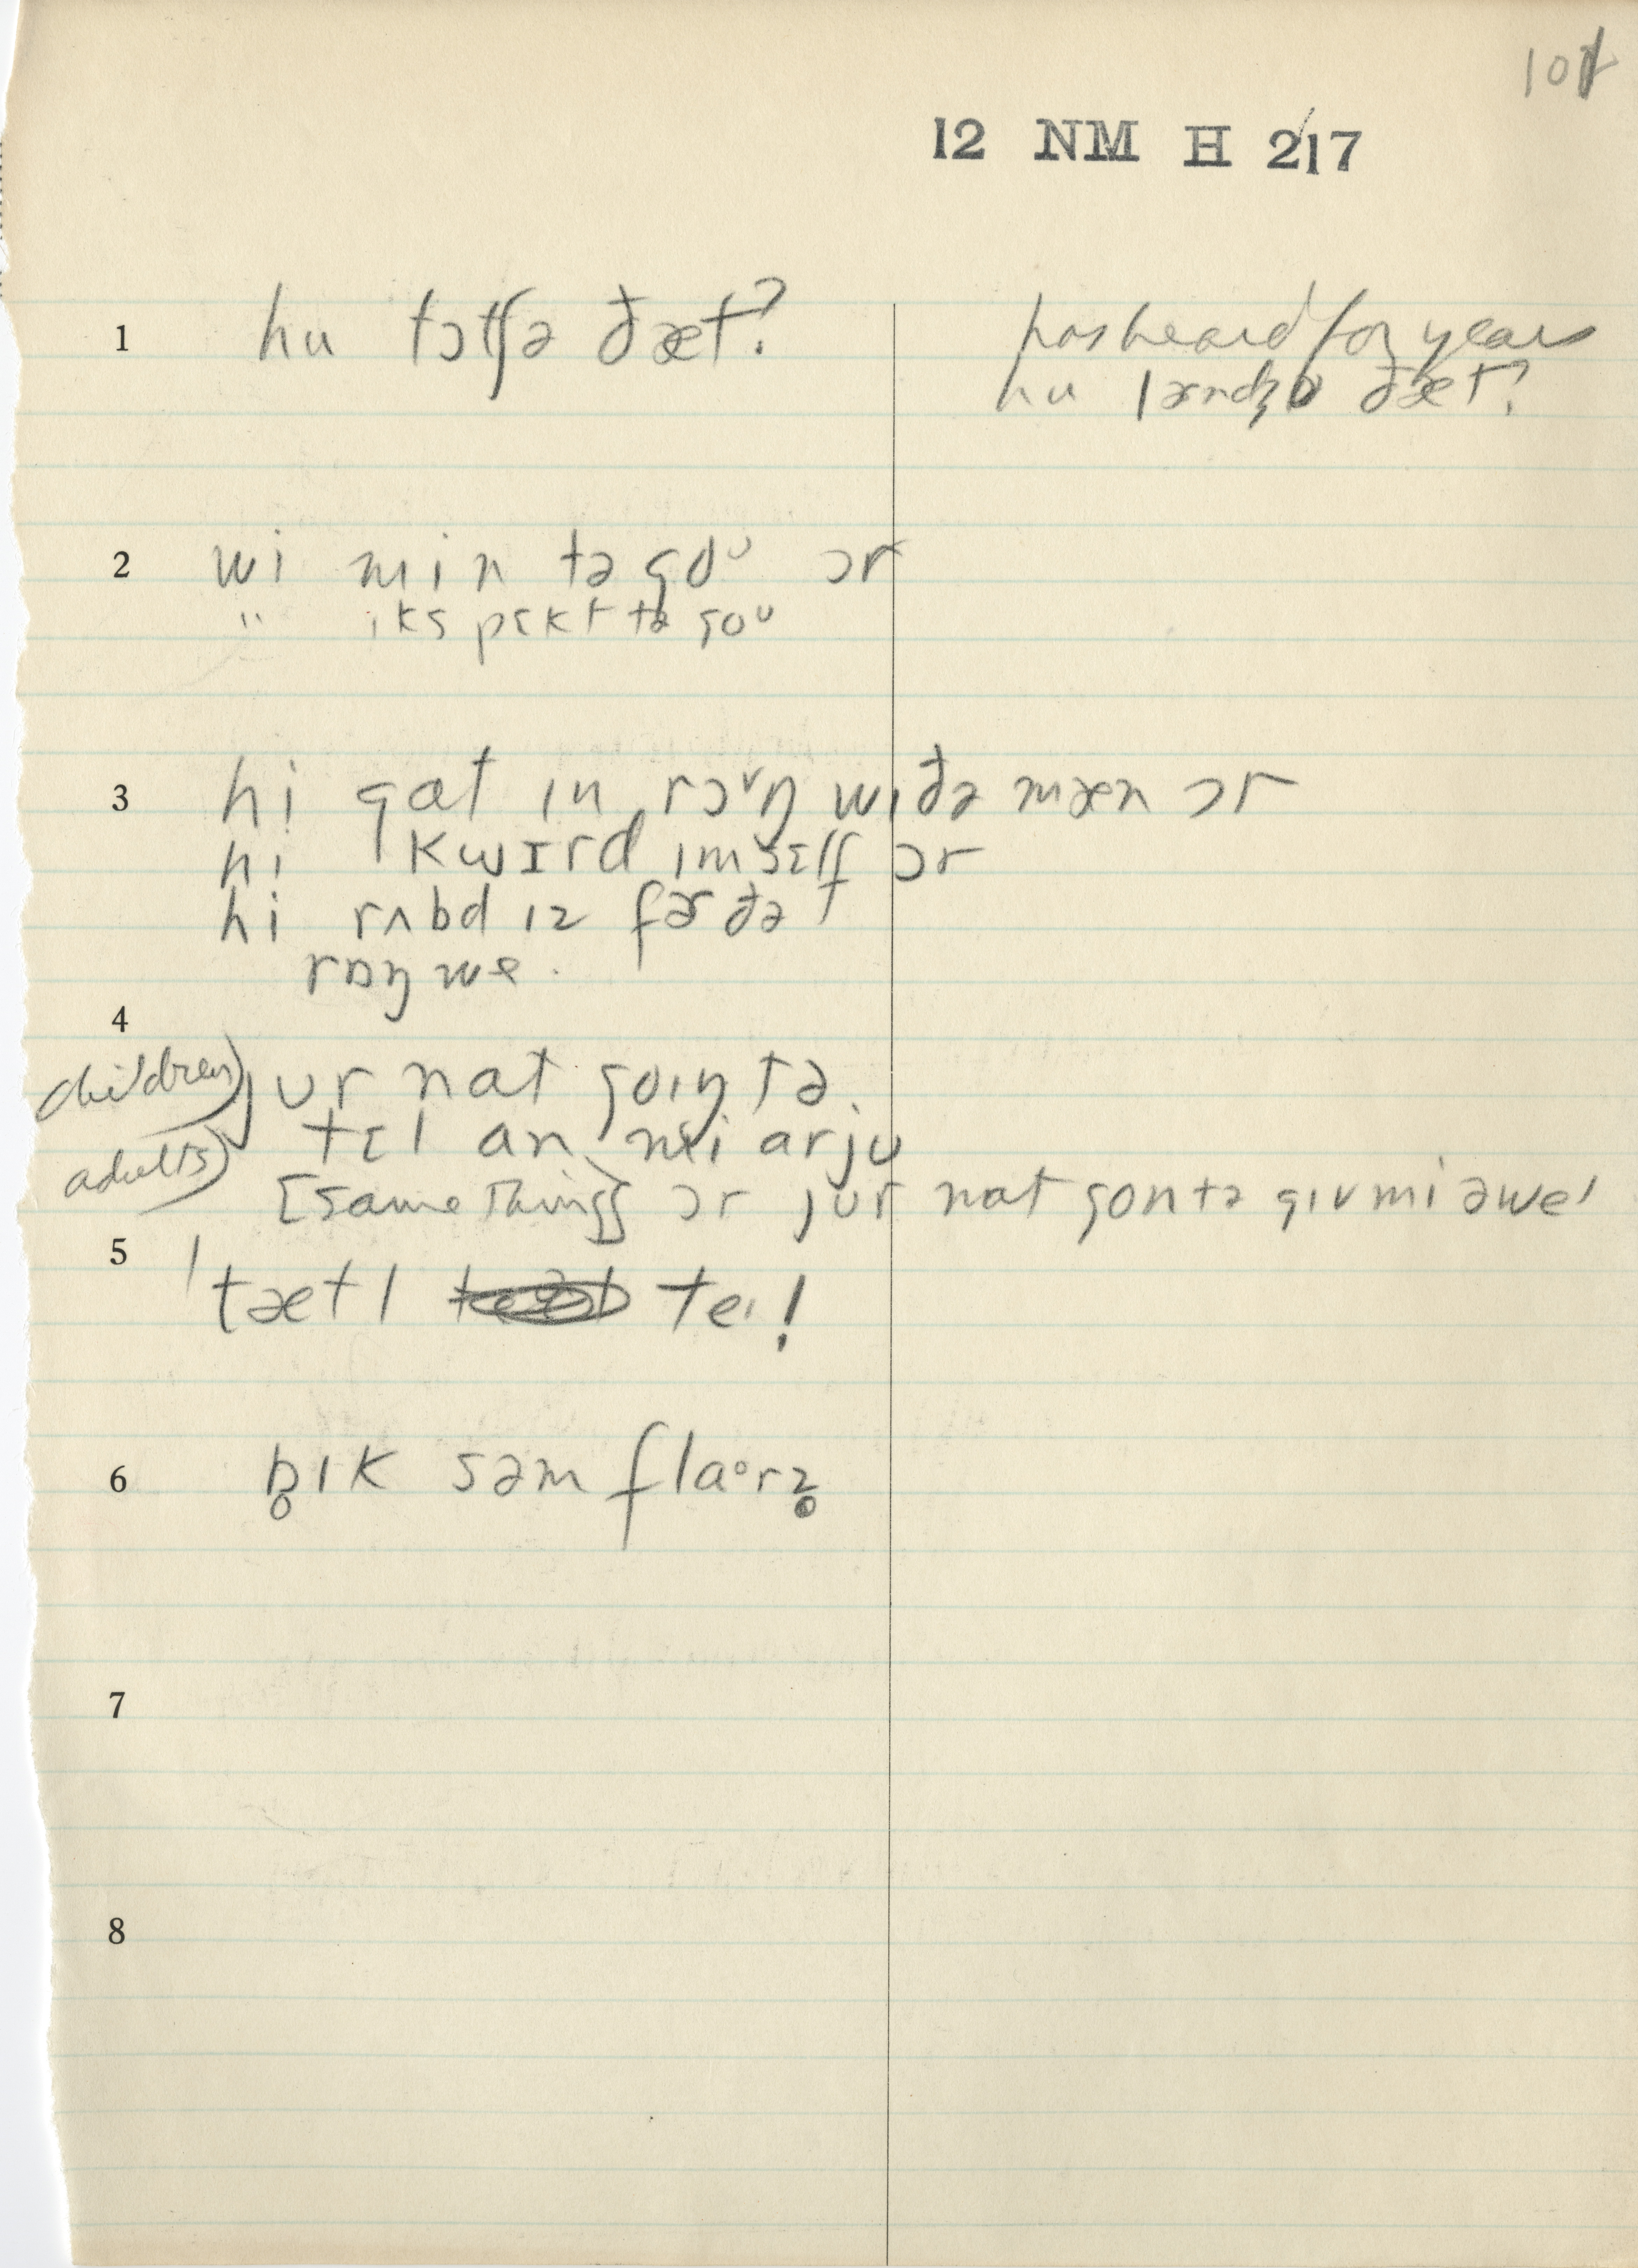 12 NM H 217
1 hu tɔtʃə ðæt?
has heard for years
hu lərndʒə ðæt?
2 wi min tə goᴜ ɔr
" ɪkspɛkt tə goᴜ
3 hi gat ɪn rɔᵛŋ wɪðə mæn ɔr
hi kwɪrd ɪmsɛlf ɔr
hi rʌbd ɪz fər ðə
rɒŋ we.
4
children) jʊr nat goɪŋ tə
tɛl an mi arju
adults) [same thing] ɔr jʊr nat gontə gɪv mi əweɪ
5 ˈtætl teɪ!
6 b̥ɪk səm flaᵒrz̥
7
8